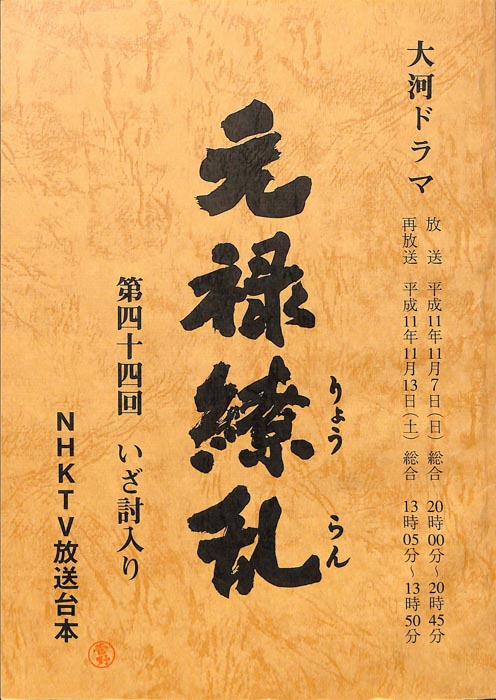 大河ドラマ
放送 平成11年11月7日(日) 総合 20時00分〜20時45分
再放送 平成11年11月13日(土) 総合 13時05分〜13時50分
元禄繚乱
りょう らん
第四十四回 いざ討入り
NHKTV放送台本